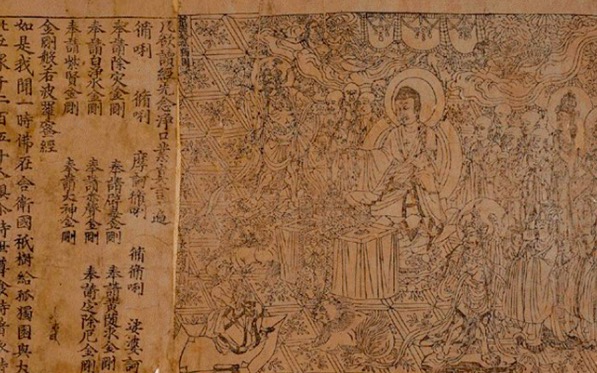 凡欲讀經先念淨口業真言一遍
脩唎 脩唎 摩訶脩唎 脩脩唎 娑婆訶
奉請除灾金剛 奉請辟毒金剛 奉請黄隨求金剛
奉請白淨水金剛 奉請赤聲金剛 奉請定除厄金剛
奉請紫賢金剛 奉請大神金剛
金剛般若波羅蜜經
如是我聞一時佛在舍衛國祇樹給孤獨園與大
比丘衆千二百五十人俱尒時世尊食時著衣持